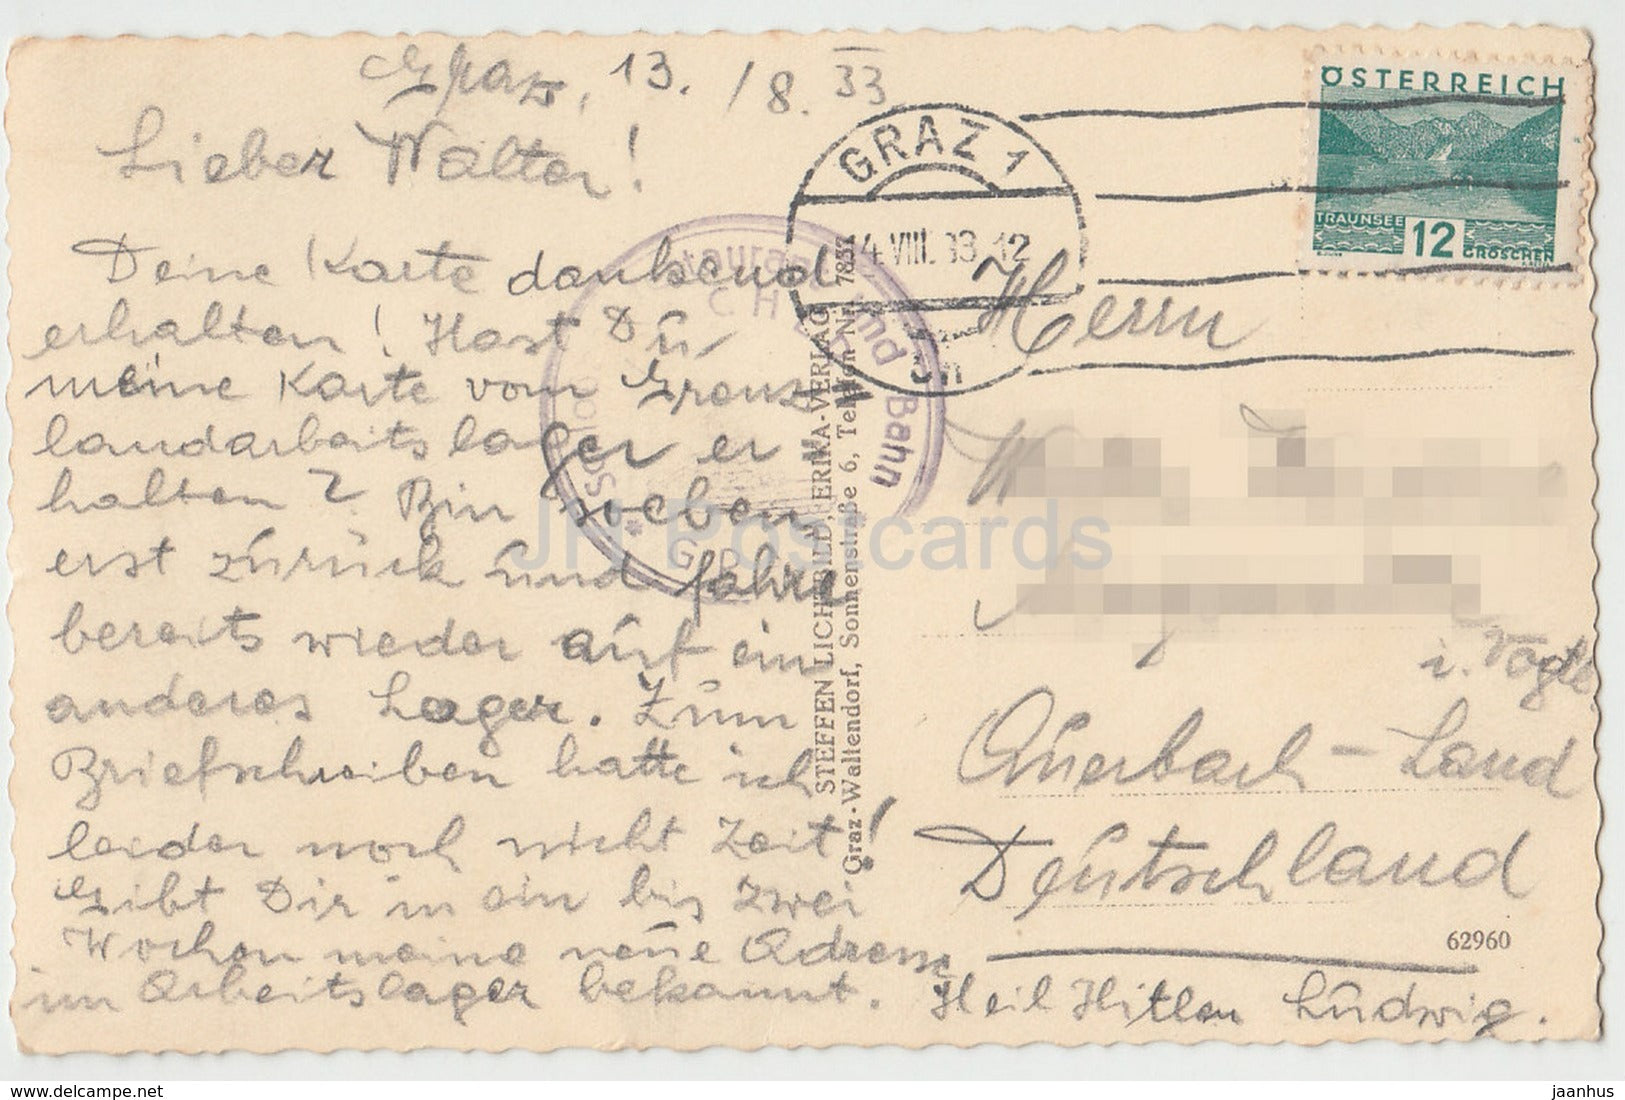 Graz, 13. /8. 33
Lieber Walter!
Deine Karte dankend
erhalten! Hast Du
meine Karte vom Grenz
landarbeitslager er
halten? Bin soeben
erst zurück und fahre
bereits wieder auf ein
anderes Lager. Zum
Briefschreiben hatte ich
leider noch nicht Zeit!
Gibt Dir in ein bis zwei
Wochen meine neue Adresse
im Arbeitslager bekannt. Heil Hitler Ludwig.
ÖSTERREICH
TRAUNSEE 12 GROSCHEN
GRAZ 1
14.VIII.33.12
und Bahn
STEFFEN LICHTBILD, ERIKA-VERLAG
Graz-Waltendorf, Sonnenstraße 6, Telefon Nr. 7837
Herrn
i. Vogtl
Auerbach - Land
Deutschland
62960
JH Postcards
delcampe.net
jaanhus